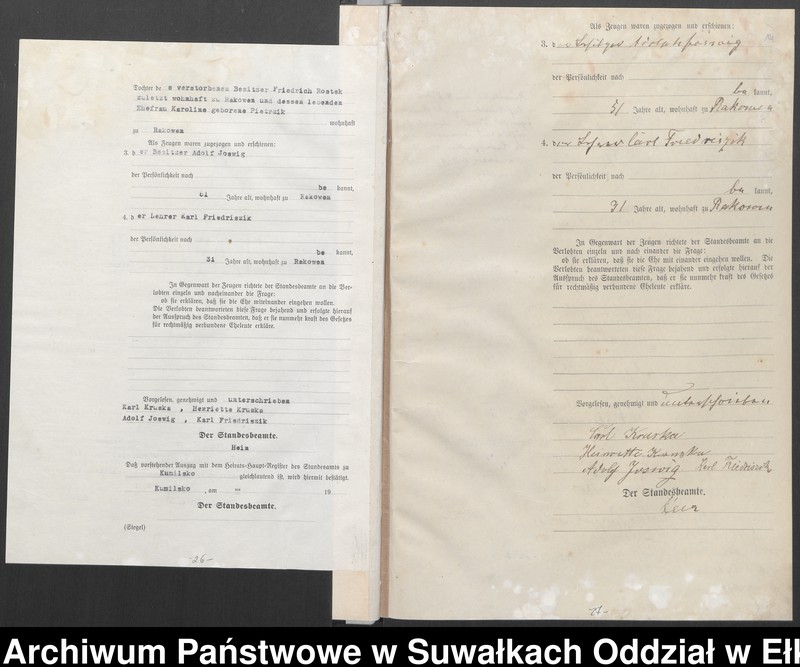 Tochter de s verstorbenen Besitzer Friedrich Rostek
zuletzt wohnhaft zu Rakowen und dessen lebenden
Ehefrau Karoline geborene Pietrzik
wohnhaft
zu Rakowen
Als Zeugen waren zugezogen und erschienen:
3. d er Besitzer Adolf Joswig
der Persönlichkeit nach
be kannt,
61 Jahre alt, wohnhaft zu Rakowen
4. d er Lehrer Karl Friedriszik
der Persönlichkeit nach
be kannt,
31 Jahre alt, wohnhaft zu Rakowen
In Gegenwart der Zeugen richtete der Standesbeamte an die Ver-
lobten einzeln und nacheinander die Frage:
ob sie erklären, daß sie die Ehe miteinander eingehen wollen.
Die Verlobten beantworteten diese Frage bejahend und erfolgte hierauf
der Ausspruch des Standesbeamten, daß er sie nunmehr kraft des Gesetzes
für rechtmäßig verbundene Eheleute erkläre.
Vorgelesen, genehmigt und unterschrieben
Karl Kruska , Henriette Kruska
Adolf Joswig , Karl Friedriszik
Der Standesbeamte.
Hein
Daß vorstehender Auszug mit dem Heirats-Haupt-Register des Standesamts zu
Kumilsko gleichlautend ist, wird hiermit bestätigt.
Kumilsko , am "" 19
Der Standesbeamte.
(Siegel)
-26-
Als Zeugen waren zugezogen und erschienen:
3. der Besitzer Adolph Joswig
der Persönlichkeit nach
be kannt,
51 Jahre alt, wohnhaft zu Rakowen
4. der Lehrer Carl Friedriszik
der Persönlichkeit nach
be kannt,
31 Jahre alt, wohnhaft zu Rakowen
In Gegenwart der Zeugen richtete der Standesbeamte an die
Verlobten einzeln und nach einander die Frage:
ob sie erklären, daß sie die Ehe mit einander eingehen wollen. Die
Verlobten beantworteten diese Frage bejahend und erfolgte hierauf der
Ausspruch des Standesbeamten, daß er sie nunmehr kraft des Gesetzes
für rechtmäßig verbundene Eheleute erkläre.
Vorgelesen, genehmigt und unterschrieben
Carl Kruska
Henriette Kruska
Adolf Joswig Karl Friedriszik
Der Standesbeamte.
-27-
Archiwum Państwowe w Suwałkach Oddział w Eł